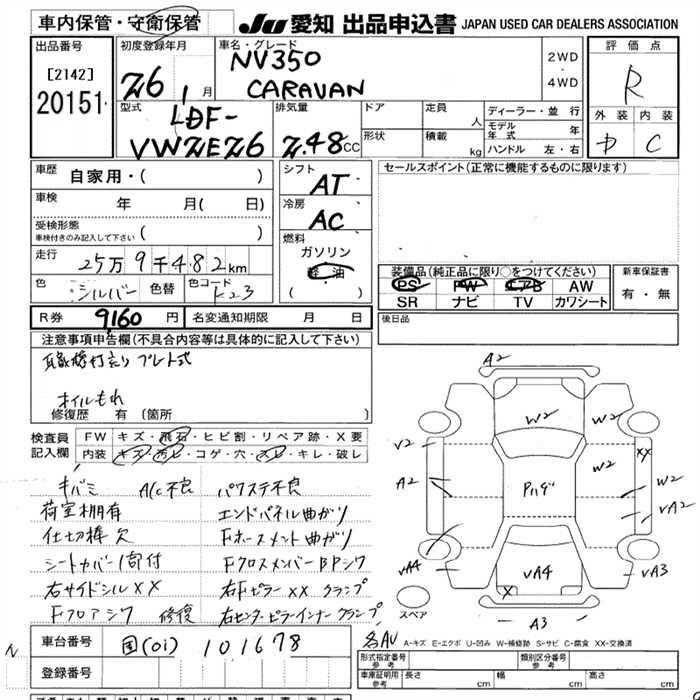 車内保管・守衛保管
JU 愛知 出品申込書 JAPAN USED CAR DEALERS ASSOCIATION
出品番号
[2142]
20151
初度登録年月
26 1 月
車名・グレード
NV350
CARAVAN
2WD
・
4WD
評価点
R
外装 内装
C
型式
LDF-
VW2E26
排気量
2.48 CC
ドア
形状
定員
人
積載
kg
ディーラー・並行
モデル年式 年
ハンドル 左・右
車歴
自家用・( )
車検
年 月( 日)
受検形態
車検付きのみ記入して下さい ( )
走行
25万9千482km
色
シルバー
色替
色コード
K23
シフト
AT
冷房
AC
燃料
ガソリン
軽油
( )
セールスポイント(正常に機能するものに限ります)
装備品(純正品に限り○をつけてください)
PS PW エアB AW
SR ナビ TV カワシート
新車保証書
有・無
R券 9160 円
名変通知期限 月 日
後日品
注意事項申告欄(不具合内容等は具体的に記入して下さい)
職権打刻 プレート式
オイルもれ
修復歴 有 [箇所
検査員記入欄
FW キズ・飛石・ヒビ割・リペア跡・X要
内装 キズ・汚レ・コゲ・穴・スレ・キレ・破レ
キバミ A/C不良 パワステ不良
荷室棚有 エンドパネル曲がり
仕切棒欠 Fホースメント曲がり
シートカバー1寄付 FクロスメンバーBPシワ
右サイドシルXX 右Fピラー XX クランプ
Fフロアシワ 修復 右センターピラーインナークランプ
A2
W2
W2
V2
A2
Pハゲ
W2
XX
W2
VA2
VA4
VA4
VA3
X
スペア
A3
各AU
A-キズ E-エクボ U-凹み W-補修跡 S-サビ C-腐食 XX-交換済
N
車台番号
国(01) 101678
登録番号
形式指定番号
参考
類別区分番号
参考
車庫証明用
参考
長さ cm
幅 cm
高さ cm